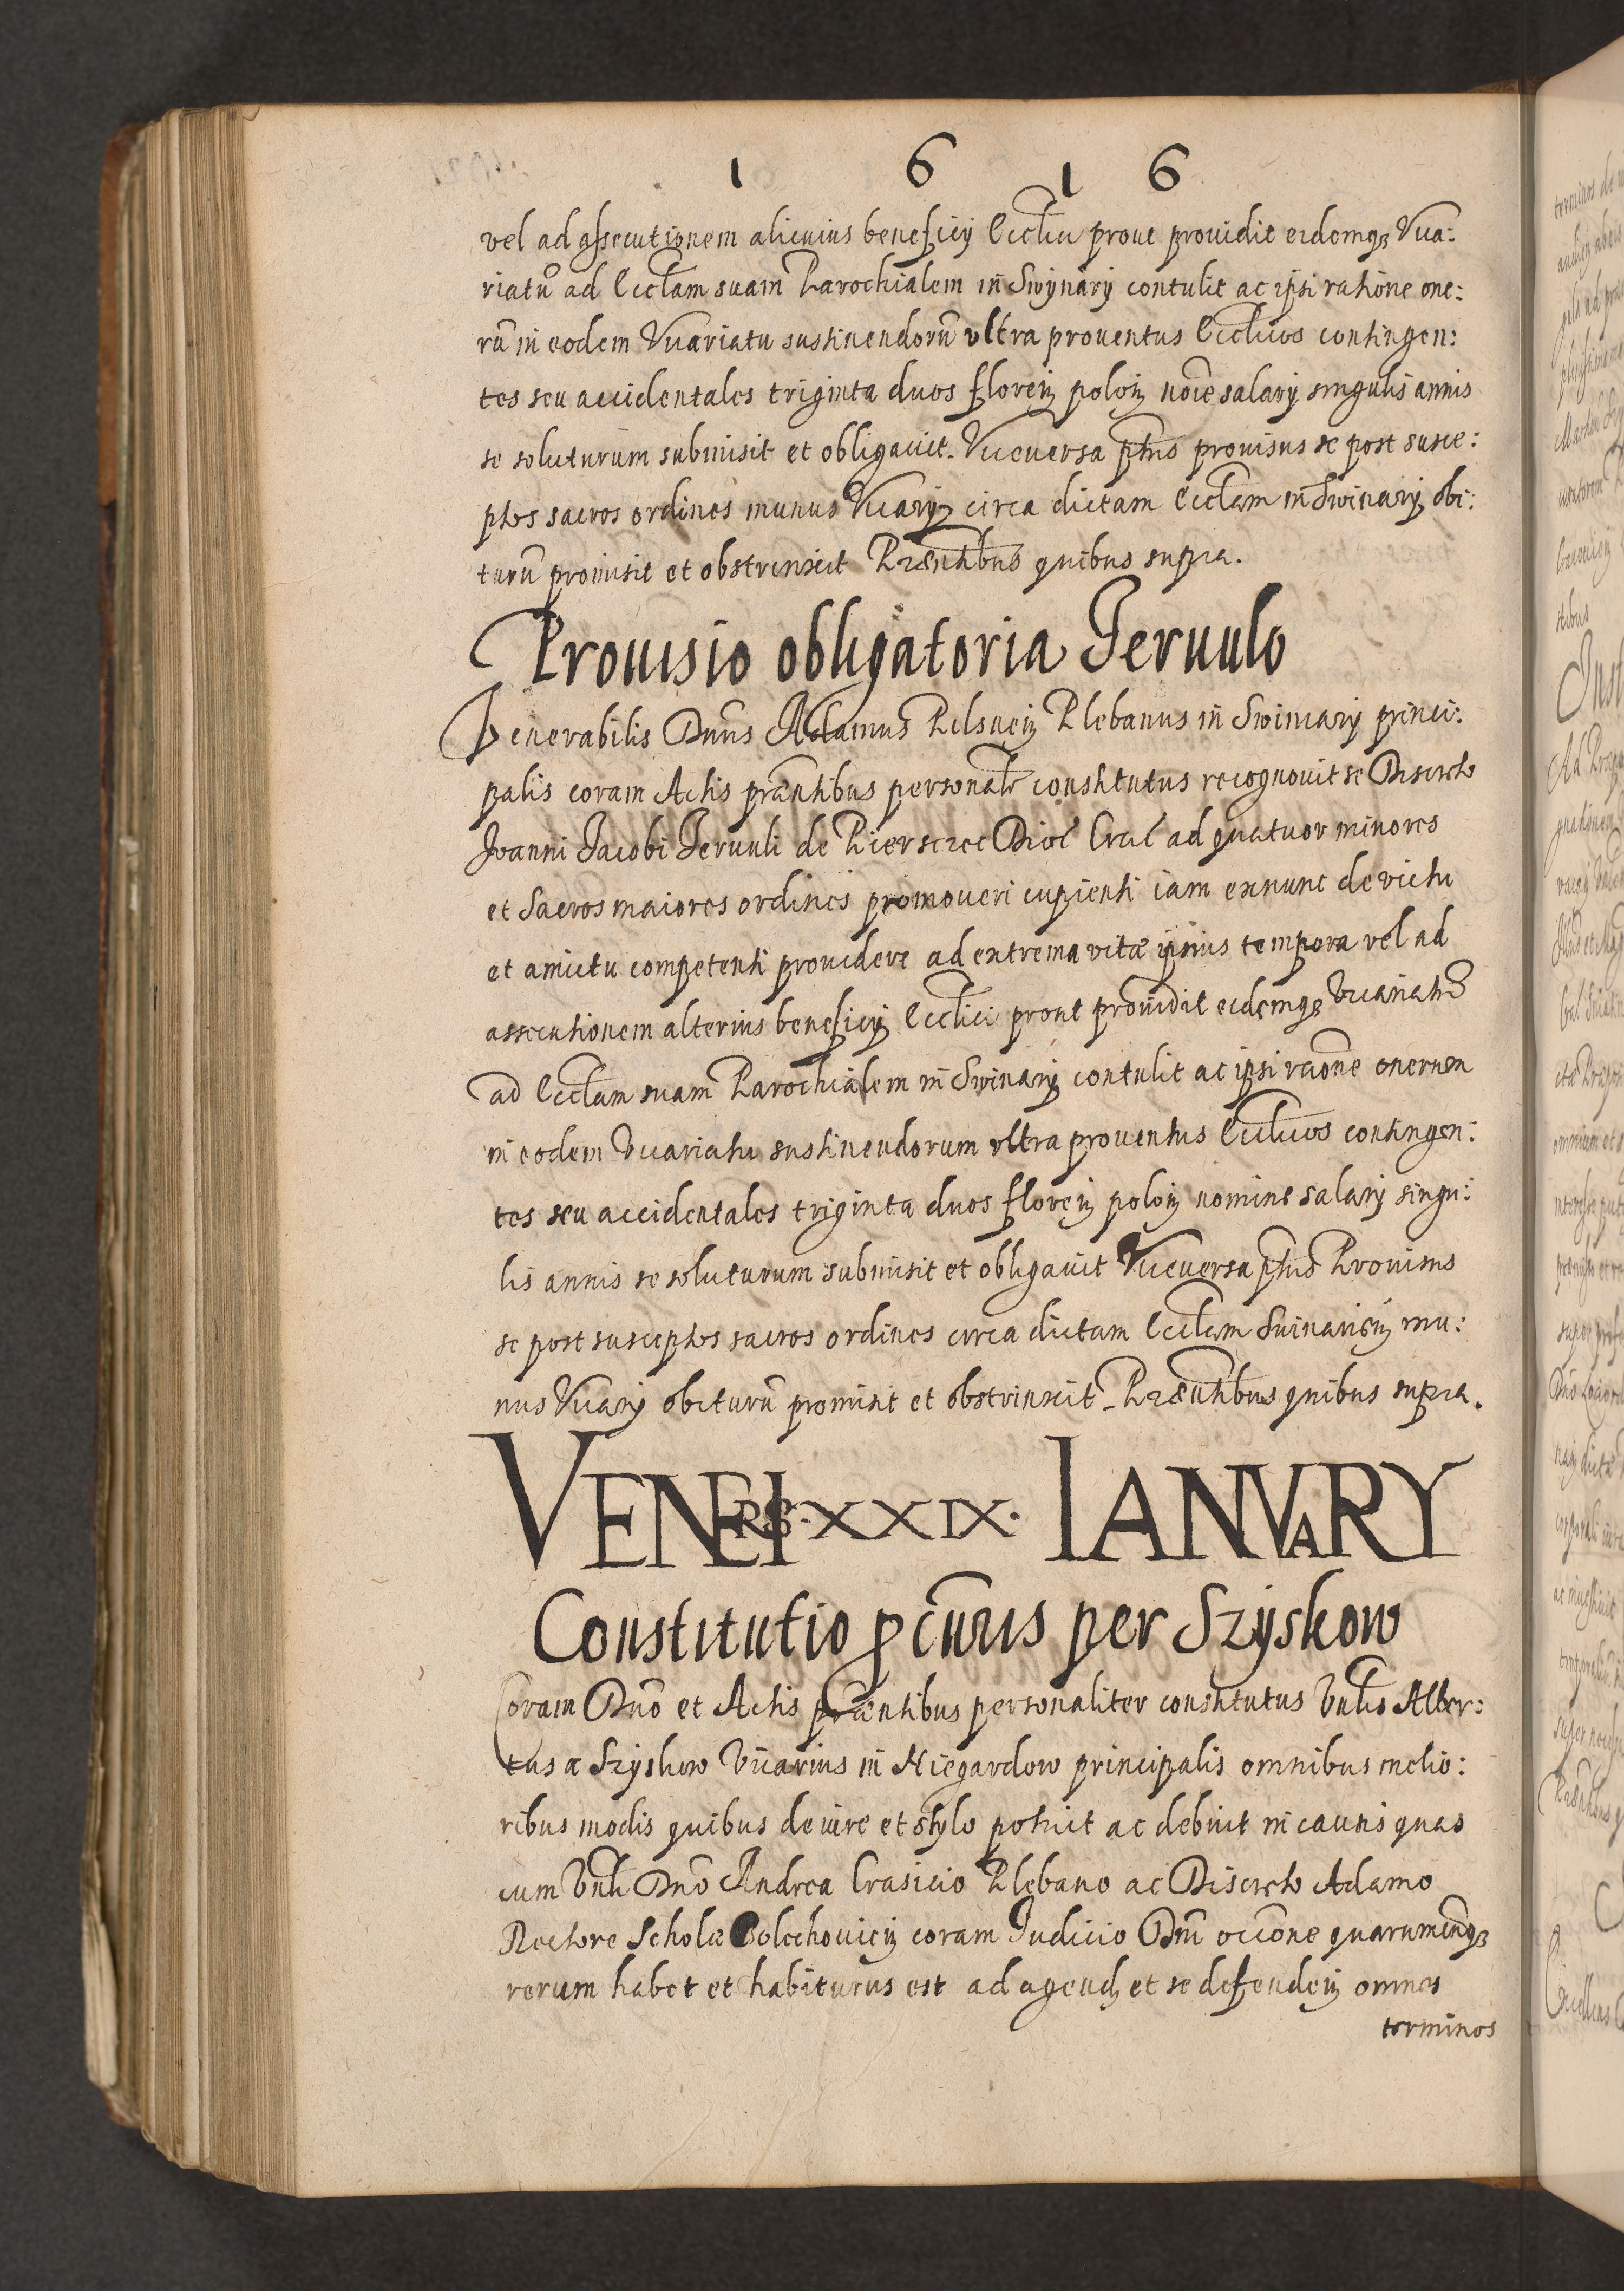 1 6 1 6
vel ad assecutionem alicuius beneficij Ecclici prout prouidit eidemq3 Vica:
riatũ ad Ecclam suam Parochialem in Swynary contulit ac ipsi ratione one:
rũ in eodem Vicariatu sustinendorũ vltra prouentus Eccticos contingen:
tes seu accidentales triginta duos floreñ poloñ noie salarij singulis annis
se soluturum submisit et obligauit. Viceuersa ptus prouisus se post susce:
ptos sacros ordines munus Vicarij circa dictam Ecclam in Swinarij obi:
turũ promisit et obstrinxit Præntibus quibus supra.
Prouisio obligatoria Jeruulo
Venerabilis Dnns Adamus Pilsneñ Plebanus in Swinary princi:
palis coram Actis præntibus personalr constitutus recognouit se Discreto
Joanni Jacobi Jeruuli de Pierszcze Dioc Crac ad quatuor minores
et Sacros maiores ordines promoueri cupienti iam exnunc de victu
et amictu competenti prouidere ad extrema vitæ ipsius tempora vel ad
assecutionem alterius beneficij Ecclici prout prouidit eidemq3 Vicariatũ
ad Ecclam suam Parochialem in Swinary contulit ac ipsi raone onerum
in eodem Vicariatu sustinendorum vltra prouentus Ecclicos contingen:
tes seu accidentales triginta duos floreñ poloñ nomine salarij singu:
lis annis se soluturum submisit et obligauit Viceuersa ptus Prouisus
se post susceptos sacros ordines circa dictam Ecclam Suinarieñ mu:
nus Vicarij obiturũ promisit et obstrinxit. Præntibus quibus supra.
VENERIS. XXIX. IANVARY
Constitutio pcuris per Szyskow
Coram Dno et Actis præntibus personaliter constitutus Vnlis Alber:
tus a Szyskow Vicarius in Niegardow principalis omnibus melio:
ribus modis quibus de iure et stylo potuit ac debuit in causis quas
cum Vnli Dno Andrea Crasicio Plebano ac Discreto Adamo
Rectore Scholæ Bolechouiceñ coram Judicio Dni occone quarumcunq3
rerum habet et habiturus est ad agend et se defendeñ omnes
terminos